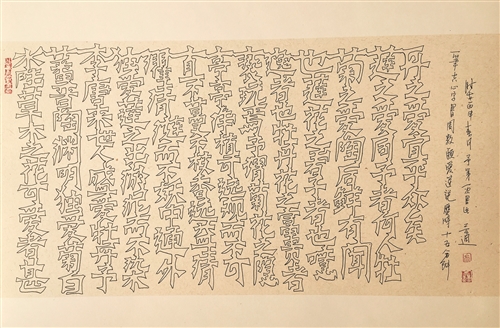 水陸草木之花可愛者甚
蕃晉陶淵明獨愛菊自
李唐來世人盛愛牡丹予
獨愛蓮之出淤泥而不染
濯清漣而不妖中通外
直不蔓不枝香遠益清
亭亭淨植可遠觀而不可
褻玩焉予謂菊花之隱
逸者也牡丹花之富貴者
也蓮花之君子者也噫
菊之愛陶后鮮有聞
蓮之愛同予者何人牡
丹之愛宜乎眾矣
一筆空心字書周敦頤愛蓮說歷時十五分鐘
丙申